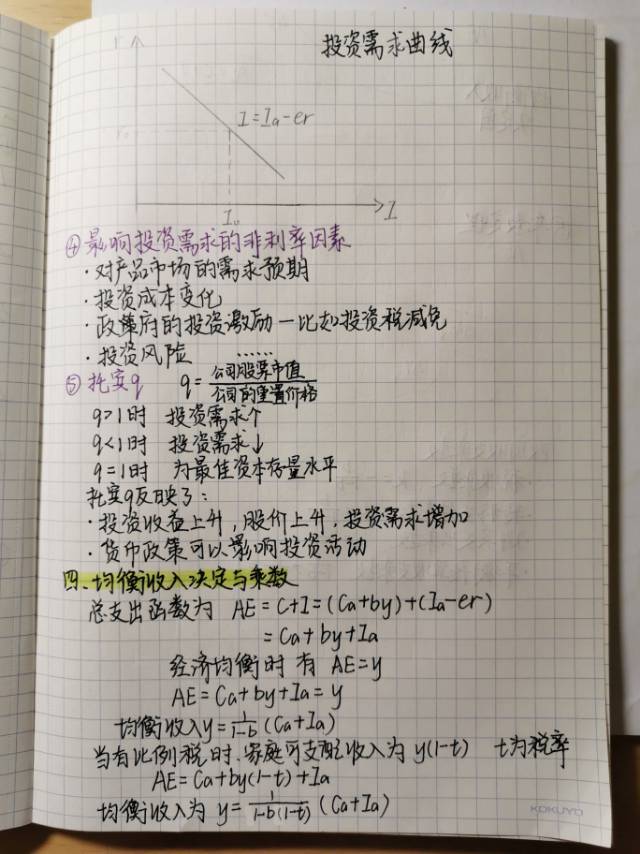 投资需求曲线
r
I=Ia-er
r₀
I₀
I
④影响投资需求的非利率因素
·对产品市场的需求预期
·投资成本变化
·政策府的投资激励—比如投资税减免
·投资风险 ……
⑤托宾q q=公司股票市值/公司的重置价格
q>1时 投资需求↑
q<1时 投资需求↓
q=1时 为最佳资本存量水平
托宾q反映了:
·投资收益上升,股价上升,投资需求增加
·货币政策可以影响投资活动
四、均衡收入决定与乘数
总支出函数为 AE=C+I=(Ca+by)+(Ia-er)
=Ca+by+Ia
经济均衡时有 AE=y
AE=Ca+by+Ia=y
均衡收入y=1/(1-b)(Ca+Ia)
当有比例税时,家庭可支配收入为y(1-t) t为税率
AE=Ca+by(1-t)+Ia
均衡收入为 y=1/(1-b(1-t))(Ca+Ia)
KOKUYO